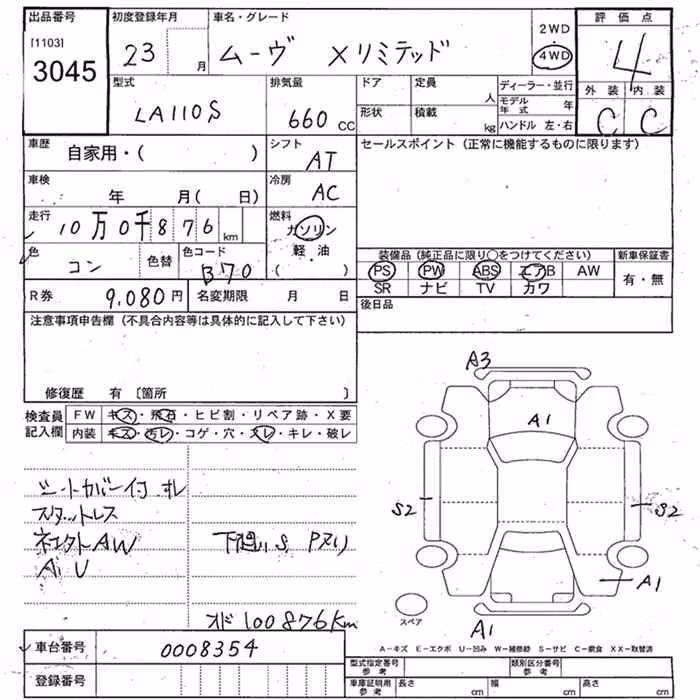 出品番号 初度登録年月 車名・グレード 評価点
[1103] 3045 23 月 ムーヴ Xリミテッド 2WD 4WD 4
型式 排気量 ドア 定員 人 ディーラー・並行 外装 内装
LA110S 660 CC 形状 積載 kg モデル年式 年 C C
ハンドル 左・右
車歴 自家用・( ) シフト AT セールスポイント (正常に機能するものに限ります)
車検 年 月( 日) 冷房 AC
走行 10万0千876 km 燃料 ガソリン
軽・油
( )
色 コン 色替 色コード B70 装備品 (純正品に限り○をつけてください) 新車保証書
PS PW ABS エアB AW 有・無
SR ナビ TV カワ
R券 9,080円 名変期限 月 日 後日品
注意事項申告欄 (不具合内容等は具体的に記入して下さい)
修復歴 有 〔箇所 〕
検査員記入欄 FW キズ・飛石・ヒビ割・リペア跡・X要
内装 キズ・汚レ・コゲ・穴・スレ・キレ・破レ
シートカバー付 スレ
スタットレス
AW
下廻りS Pヌリ
100876Km
A3
A1
S2
S2
A1
スペア
A1
A-キズ E-エクボ U-凹み W-補修跡 S-サビ C-腐食 XX-取替済
車台番号 0008354
登録番号
型式指定番号 参考 類別区分番号 参考
車庫証明用 参考 長さ cm 幅 cm 高さ cm